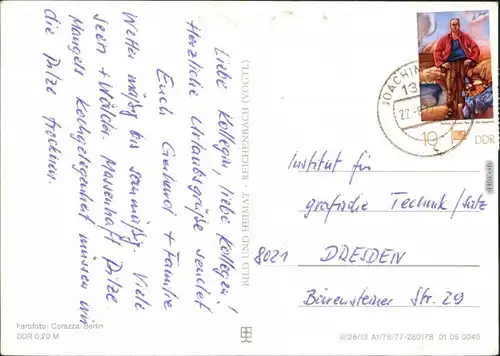 Liebe Kollegin, liebe Kollegen!
Herzliche Urlaubsgrüße sendet
Euch Gerhard + Familie
Wetter mäßig bis saumäßig. Viele
Seen + Wälder. Massenhaft Pilze
Mangels Kochgelegenheit müssen wir
die Pilze trocknen.
BILD UND HEIMAT · REICHENBACH (VOGTL)
JOACHIM
10
DDR
Institut für
grafische Technik / Satz
8021 DRESDEN
Bärensteiner Str. 29
Farbfoto: Corazza, Berlin
DDR 0,20 M
III/26/13 A1/76/77-280178 01 05 0040